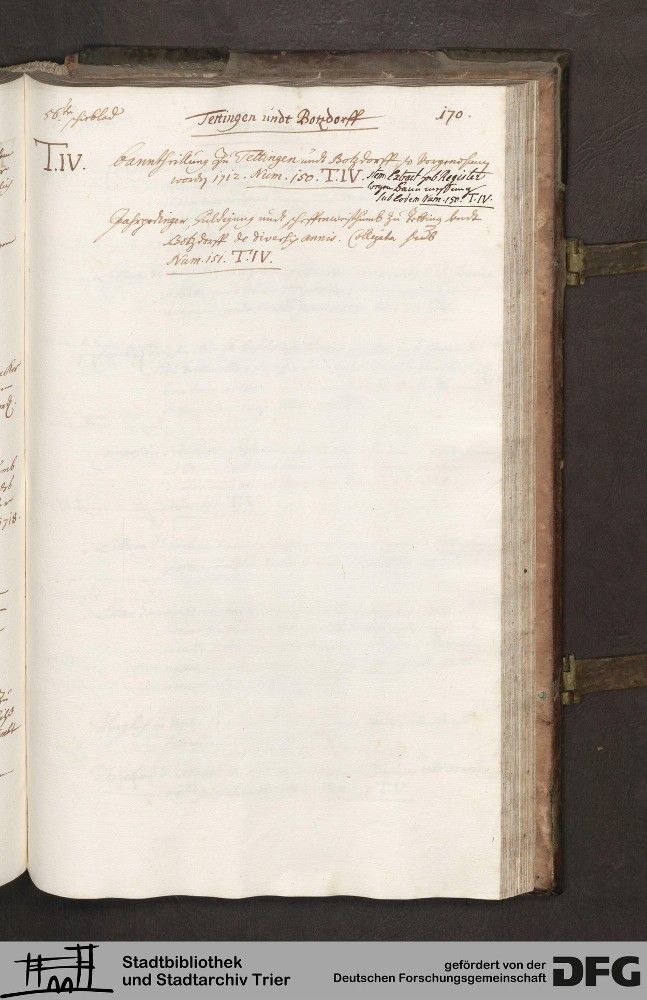 56te schiblad
Tettingen undt Botzdorff
170.
T.IV.
banntheillung zu Tettingen undt Botzdorff so vorgenohmen
worden 1712. Num. 150. T.IV.
Item Extract hob Register
sub eodem Num. 150. T.IV.
Jahrgedinger huldigung undt scheffenweisthumb zu Tetting undt
Botzdorff de diversis annis. Colligata sub
Num. 151. T.IV.
1718.
Stadtbibliothek
und Stadtarchiv Trier
gefördert von der
Deutschen Forschungsgemeinschaft
DFG